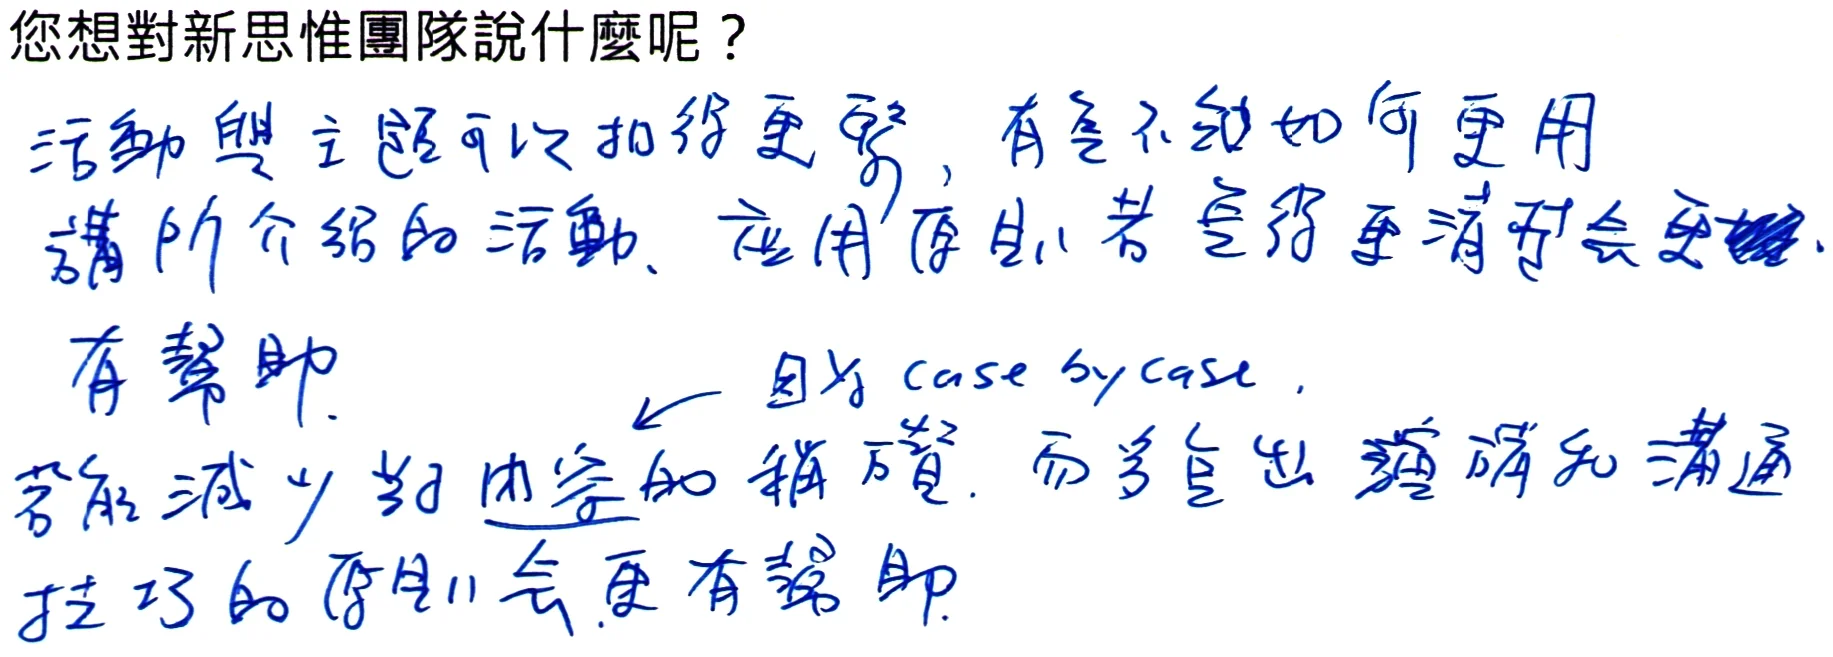 您想對新思惟團隊說什麼呢？
活動與主題可以扣得更緊，有些不知如何更用
講所介紹的活動、应用原則若寫得更清楚会更
有幫助.
因为 case by case.
若能減少對內容的稱讚. 而多寫出 演講和溝通
技巧的原則会更有幫助.